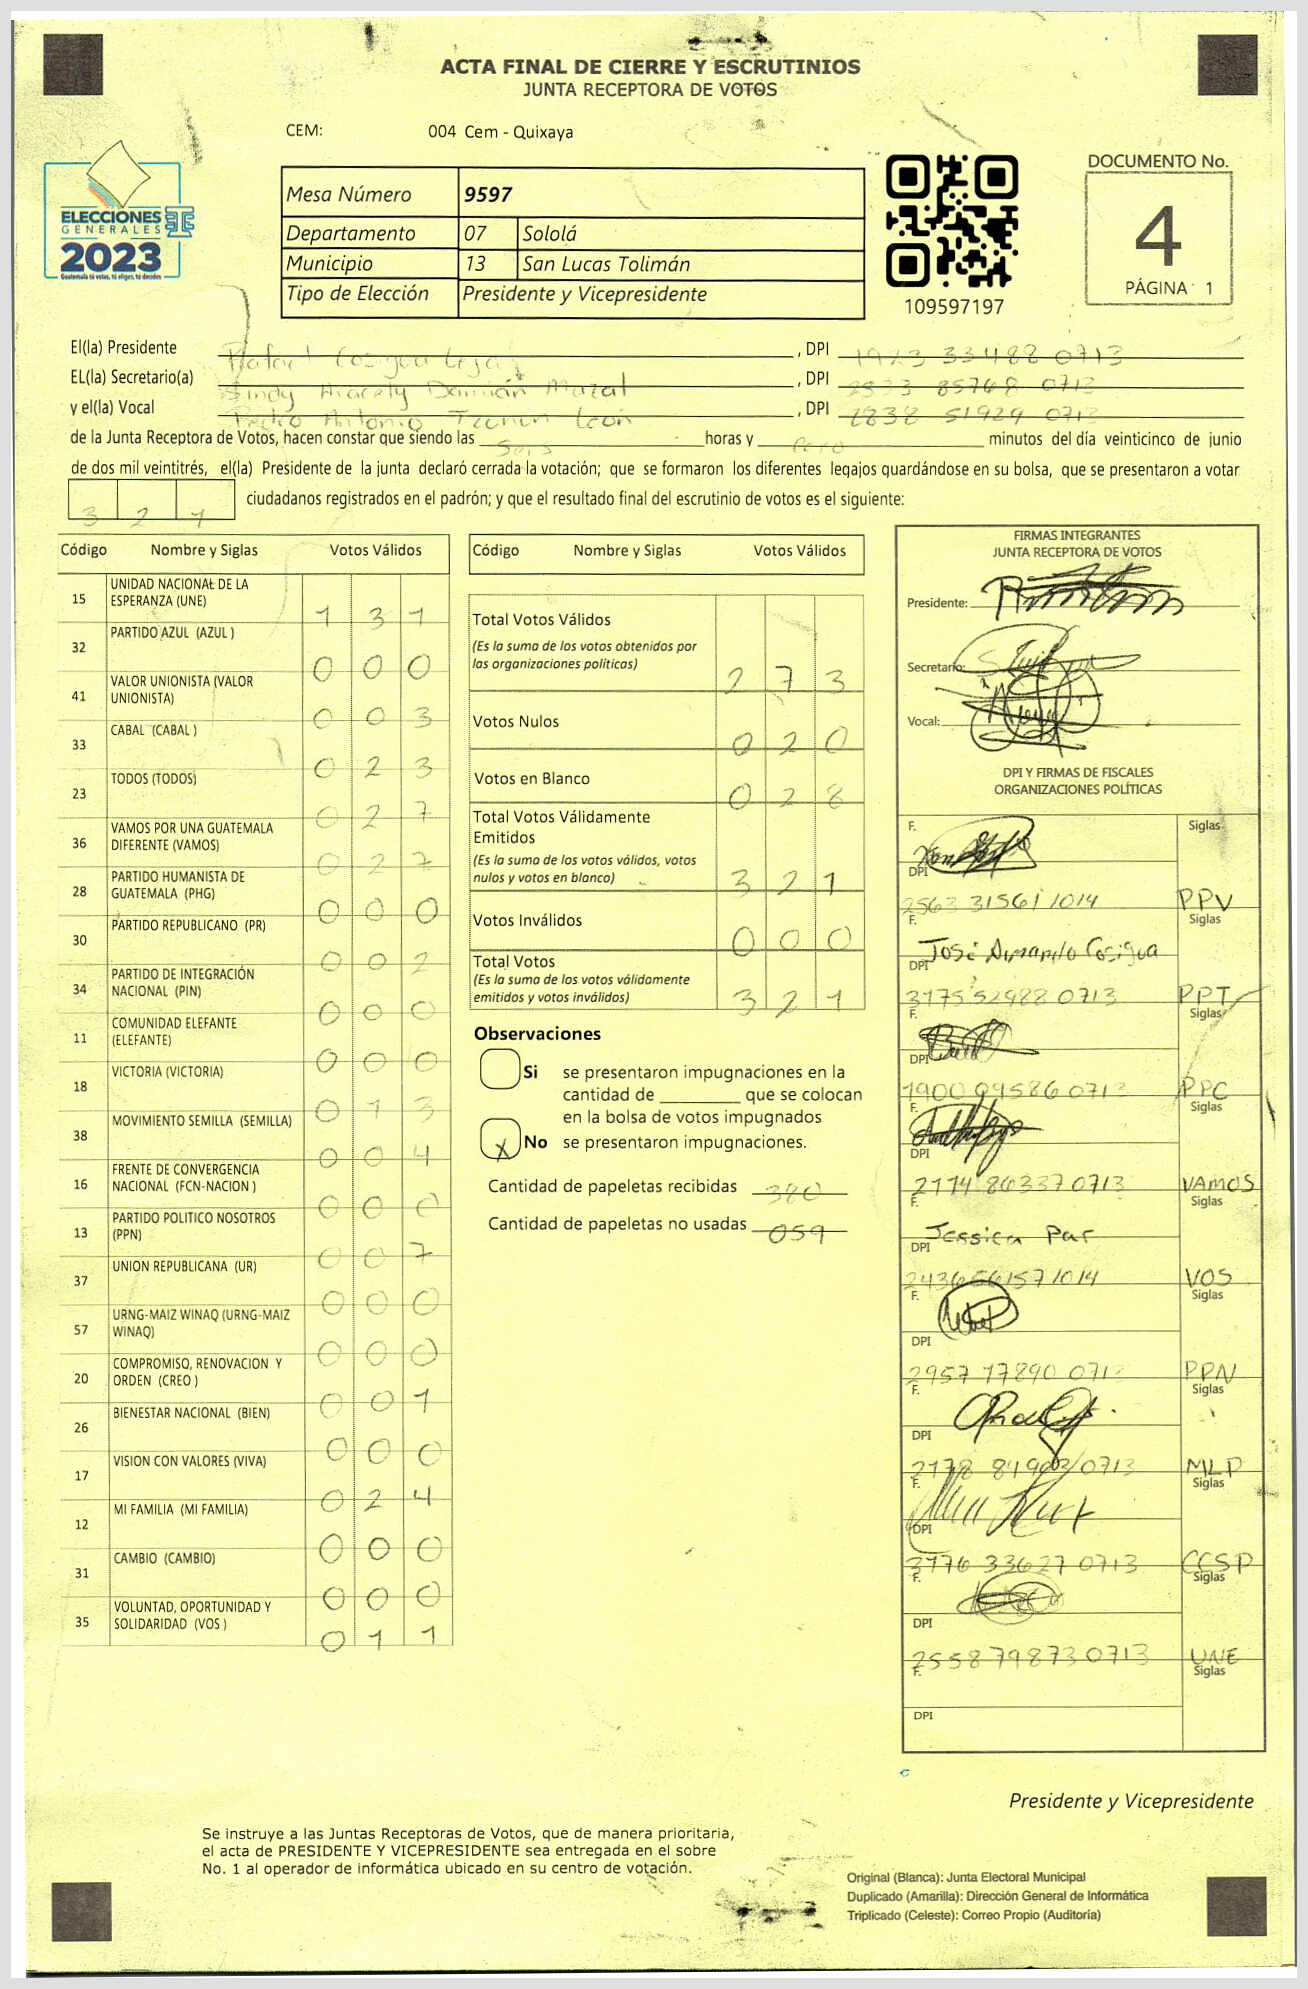 ACTA FINAL DE CIERRE Y ESCRUTINIOS
JUNTA RECEPTORA DE VOTOS
CEM: 004 Cem - Quixaya
ELECCIONES
GENERALES
2023
Guatemala tú votas, tú eliges, tú decides
Mesa Número 9597
Departamento 07 Sololá
Municipio 13 San Lucas Tolimán
Tipo de Elección Presidente y Vicepresidente
109597197
DOCUMENTO No.
4
PÁGINA 1
El(la) Presidente Rafael Cosigua , DPI 1923 33488 0713
EL(la) Secretario(a) Sindy Aracely Damián , DPI 85768 0713
y el(la) Vocal Pedro Antonio León , DPI 2838 51929 0713
de la Junta Receptora de Votos, hacen constar que siendo las Seis horas y cero minutos del día veinticinco de junio
de dos mil veintitrés, el(la) Presidente de la junta declaró cerrada la votación; que se formaron los diferentes legajos guardándose en su bolsa, que se presentaron a votar
3 2 1 ciudadanos registrados en el padrón; y que el resultado final del escrutinio de votos es el siguiente:
Código Nombre y Siglas Votos Válidos
15 UNIDAD NACIONAL DE LA ESPERANZA (UNE) 1 3 1
32 PARTIDO AZUL (AZUL ) 0 0 0
41 VALOR UNIONISTA (VALOR UNIONISTA) 0 0 3
33 CABAL (CABAL ) 0 2 3
23 TODOS (TODOS) 0 2 7
36 VAMOS POR UNA GUATEMALA DIFERENTE (VAMOS) 0 2 7
28 PARTIDO HUMANISTA DE GUATEMALA (PHG) 0 0 0
30 PARTIDO REPUBLICANO (PR) 0 0 2
34 PARTIDO DE INTEGRACIÓN NACIONAL (PIN) 0 0 0
11 COMUNIDAD ELEFANTE (ELEFANTE) 0 0 0
18 VICTORIA (VICTORIA) 0 1 3
38 MOVIMIENTO SEMILLA (SEMILLA) 0 0 4
16 FRENTE DE CONVERGENCIA NACIONAL (FCN-NACION ) 0 0 0
13 PARTIDO POLITICO NOSOTROS (PPN) 0 0 7
37 UNION REPUBLICANA (UR) 0 0 0
57 URNG-MAIZ WINAQ (URNG-MAIZ WINAQ) 0 0 0
20 COMPROMISO, RENOVACION Y ORDEN (CREO ) 0 0 1
26 BIENESTAR NACIONAL (BIEN) 0 0 0
17 VISION CON VALORES (VIVA) 0 2 4
12 MI FAMILIA (MI FAMILIA) 0 0 0
31 CAMBIO (CAMBIO) 0 0 0
35 VOLUNTAD, OPORTUNIDAD Y SOLIDARIDAD (VOS ) 0 1 1
Código Nombre y Siglas Votos Válidos
Total Votos Válidos
(Es la suma de los votos obtenidos por
las organizaciones políticas) 2 7 3
Votos Nulos 0 2 0
Votos en Blanco 0 2 8
Total Votos Válidamente
Emitidos
(Es la suma de los votos válidos, votos
nulos y votos en blanco) 3 2 1
Votos Inválidos 0 0 0
Total Votos
(Es la suma de los votos válidamente
emitidos y votos inválidos) 3 2 1
Observaciones
Si se presentaron impugnaciones en la
cantidad de ________ que se colocan
en la bolsa de votos impugnados
X No se presentaron impugnaciones.
Cantidad de papeletas recibidas 380
Cantidad de papeletas no usadas 059
FIRMAS INTEGRANTES
JUNTA RECEPTORA DE VOTOS
Presidente:
Secretario:
Vocal:
DPI Y FIRMAS DE FISCALES
ORGANIZACIONES POLÍTICAS
F. Siglas
DPI 2563 31561 1014 PPV
F. José Armando Cosigua Siglas
DPI 3175 52988 0713 PPT
F. Siglas
DPI 1900 99586 0713 PPC
F. Siglas
DPI 2174 86337 0713 VAMOS
F. Jessica Par Siglas
DPI 2436 56157 1014 VOS
F. Siglas
DPI 2957 17890 0713 PPN
F. Siglas
DPI 2178 84903 0713 MLP
F. Siglas
DPI 3176 33627 0713 CCSP
F. Siglas
DPI 2558 79873 0713 UNE
F. Siglas
DPI
Presidente y Vicepresidente
Se instruye a las Juntas Receptoras de Votos, que de manera prioritaria,
el acta de PRESIDENTE Y VICEPRESIDENTE sea entregada en el sobre
No. 1 al operador de informática ubicado en su centro de votación.
Original (Blanca): Junta Electoral Municipal
Duplicado (Amarilla): Dirección General de Informática
Triplicado (Celeste): Correo Propio (Auditoría)